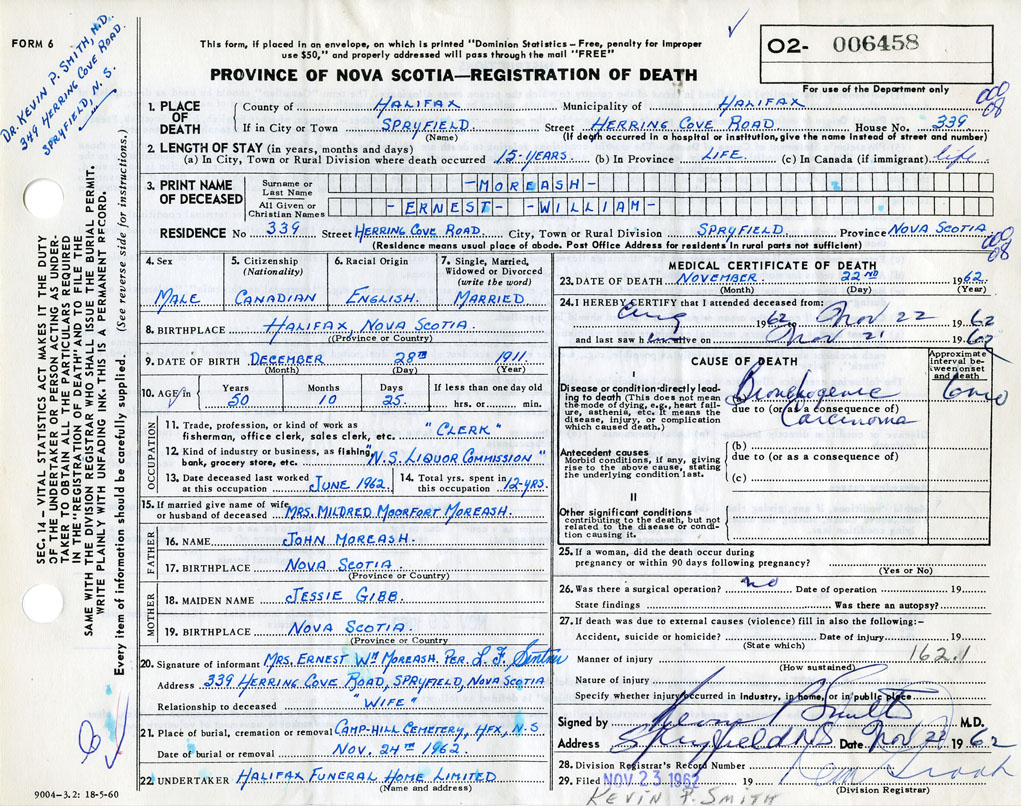 FORM 6
DR. KEVIN P. SMITH, M.D.
349 HERRING COVE ROAD.
SPRYFIELD, N.S.
This form, if placed in an envelope, on which is printed "Dominion Statistics – Free, penalty for improper
use $50," and properly addressed will pass through the mail "FREE"
PROVINCE OF NOVA SCOTIA—REGISTRATION OF DEATH
02- 006458
For use of the Department only
000
08
SEC. 14.—VITAL STATISTICS ACT MAKES IT THE DUTY
OF THE UNDERTAKER OR PERSON ACTING AS UNDER-
TAKER TO OBTAIN ALL THE PARTICULARS REQUIRED
IN THE "REGISTRATION OF DEATH" AND TO FILE THE
SAME WITH THE DIVISION REGISTRAR WHO SHALL ISSUE THE BURIAL PERMIT.
WRITE PLAINLY WITH UNFADING INK. THIS IS A PERMANENT RECORD.
Every item of information should be carefully supplied. (See reverse side for instructions.)
1. PLACE OF DEATH County of HALIFAX Municipality of HALIFAX
If in City or Town SPRYFIELD Street HERRING COVE ROAD House No. 339
(Name) (If death occurred in a hospital or institution, give the name instead of street and number)
2. LENGTH OF STAY (in years, months and days)
(a) In City, Town or Rural Division where death occurred 15-YEARS. (b) In Province LIFE. (c) In Canada (if immigrant) life
3. PRINT NAME OF DECEASED Surname or Last Name -MOREASH-
All Given or Christian Names -ERNEST- -WILLIAM-
RESIDENCE No 339 Street HERRING COVE ROAD. City, Town or Rural Division SPRYFIELD. Province NOVA SCOTIA
(Residence means usual place of abode. Post Office Address for residents in rural parts not sufficient)
000
08
4. Sex MALE
5. Citizenship (Nationality) CANADIAN
6. Racial Origin ENGLISH.
7. Single, Married, Widowed or Divorced (write the word) MARRIED.
8. BIRTHPLACE HALIFAX, NOVA SCOTIA.
(Province or Country)
9. DATE OF BIRTH DECEMBER 28TH 1911.
(Month) (Day) (Year)
10. AGE in Years 50 Months 10 Days 25. If less than one day old hrs. or min.
OCCUPATION
11. Trade, profession, or kind of work as
fisherman, office clerk, sales clerk, etc. "CLERK"
12. Kind of industry or business, as fishing,
bank, grocery store, etc. "N.S. LIQUOR COMMISSION"
13. Date deceased last worked at this occupation JUNE 1962. 14. Total yrs. spent in this occupation 12-YRS.
15. If married give name of wife
or husband of deceased MRS. MILDRED MOORFORT MOREASH.
FATHER
16. NAME JOHN MOREASH.
17. BIRTHPLACE NOVA SCOTIA.
(Province or Country)
MOTHER
18. MAIDEN NAME JESSIE GIBB.
19. BIRTHPLACE NOVA SCOTIA.
(Province or Country
20. Signature of informant MRS. ERNEST WM MOREASH. PER. L. F.
Address 339 HERRING COVE ROAD, SPRYFIELD, NOVA SCOTIA
Relationship to deceased "WIFE"
21. Place of burial, cremation or removal CAMP-HILL CEMETERY, HFX, N.S
Date of burial or removal NOV. 24TH 1962.
22 UNDERTAKER HALIFAX FUNERAL HOME LIMITED.
(Name and address)
9004-3.2: 18-5-60
MEDICAL CERTIFICATE OF DEATH
23. DATE OF DEATH NOVEMBER 22ND 1962.
(Month) (Day) (Year)
24. I HEREBY CERTIFY that I attended deceased from:
Aug 1962 to Nov 22 1962
and last saw h alive on Nov 21 1962
CAUSE OF DEATH
Approximate interval between onset and death
I
Disease or condition directly leading to death (This does not mean the mode of dying, e.g., heart failure, asthenia, etc. It means the disease, injury, or complication which caused death.)
Bronchogenic
due to (or as a consequence of)
Carcinoma
Antecedent causes
Morbid conditions, if any, giving rise to the above cause, stating the underlying condition last.
(b)
due to (or as a consequence of)
(c)
II
Other significant conditions
contributing to the death, but not related to the disease or condition causing it.
25. If a woman, did the death occur during
pregnancy or within 90 days following pregnancy?
(Yes or No)
26. Was there a surgical operation? no Date of operation 19
State findings Was there an autopsy?
27. If death was due to external causes (violence) fill in also the following:-
Accident, suicide or homicide? Date of injury 19
(State which)
162.1
Manner of injury
(How sustained)
Nature of injury
Specify whether injury occurred in Industry, in home, or in public place
Signed by Kevin P Smith M.D.
Address Spryfield NS Date Nov 22 1962
28. Division Registrar's Record Number
29. Filed NOV 23 1962 19
(Division Registrar)
KEVIN P. SMITH